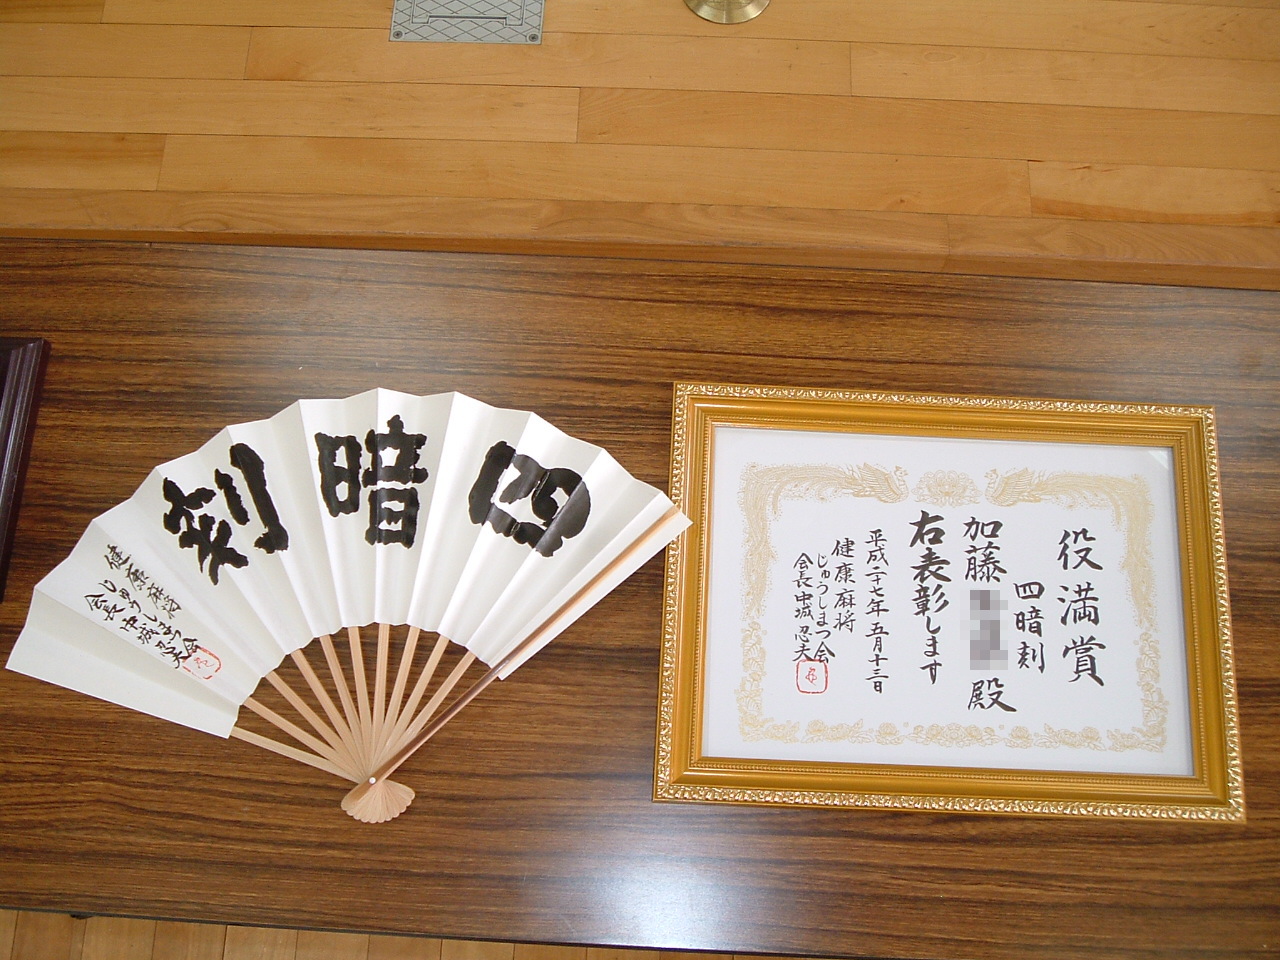 四暗刻
健康麻将
じゅうしまつ会
会長中城忍夫
役満賞
四暗刻
加藤 殿
右表彰します
平成二十七年五月十三日
健康麻将
じゅうしまつ会
会長中城忍夫